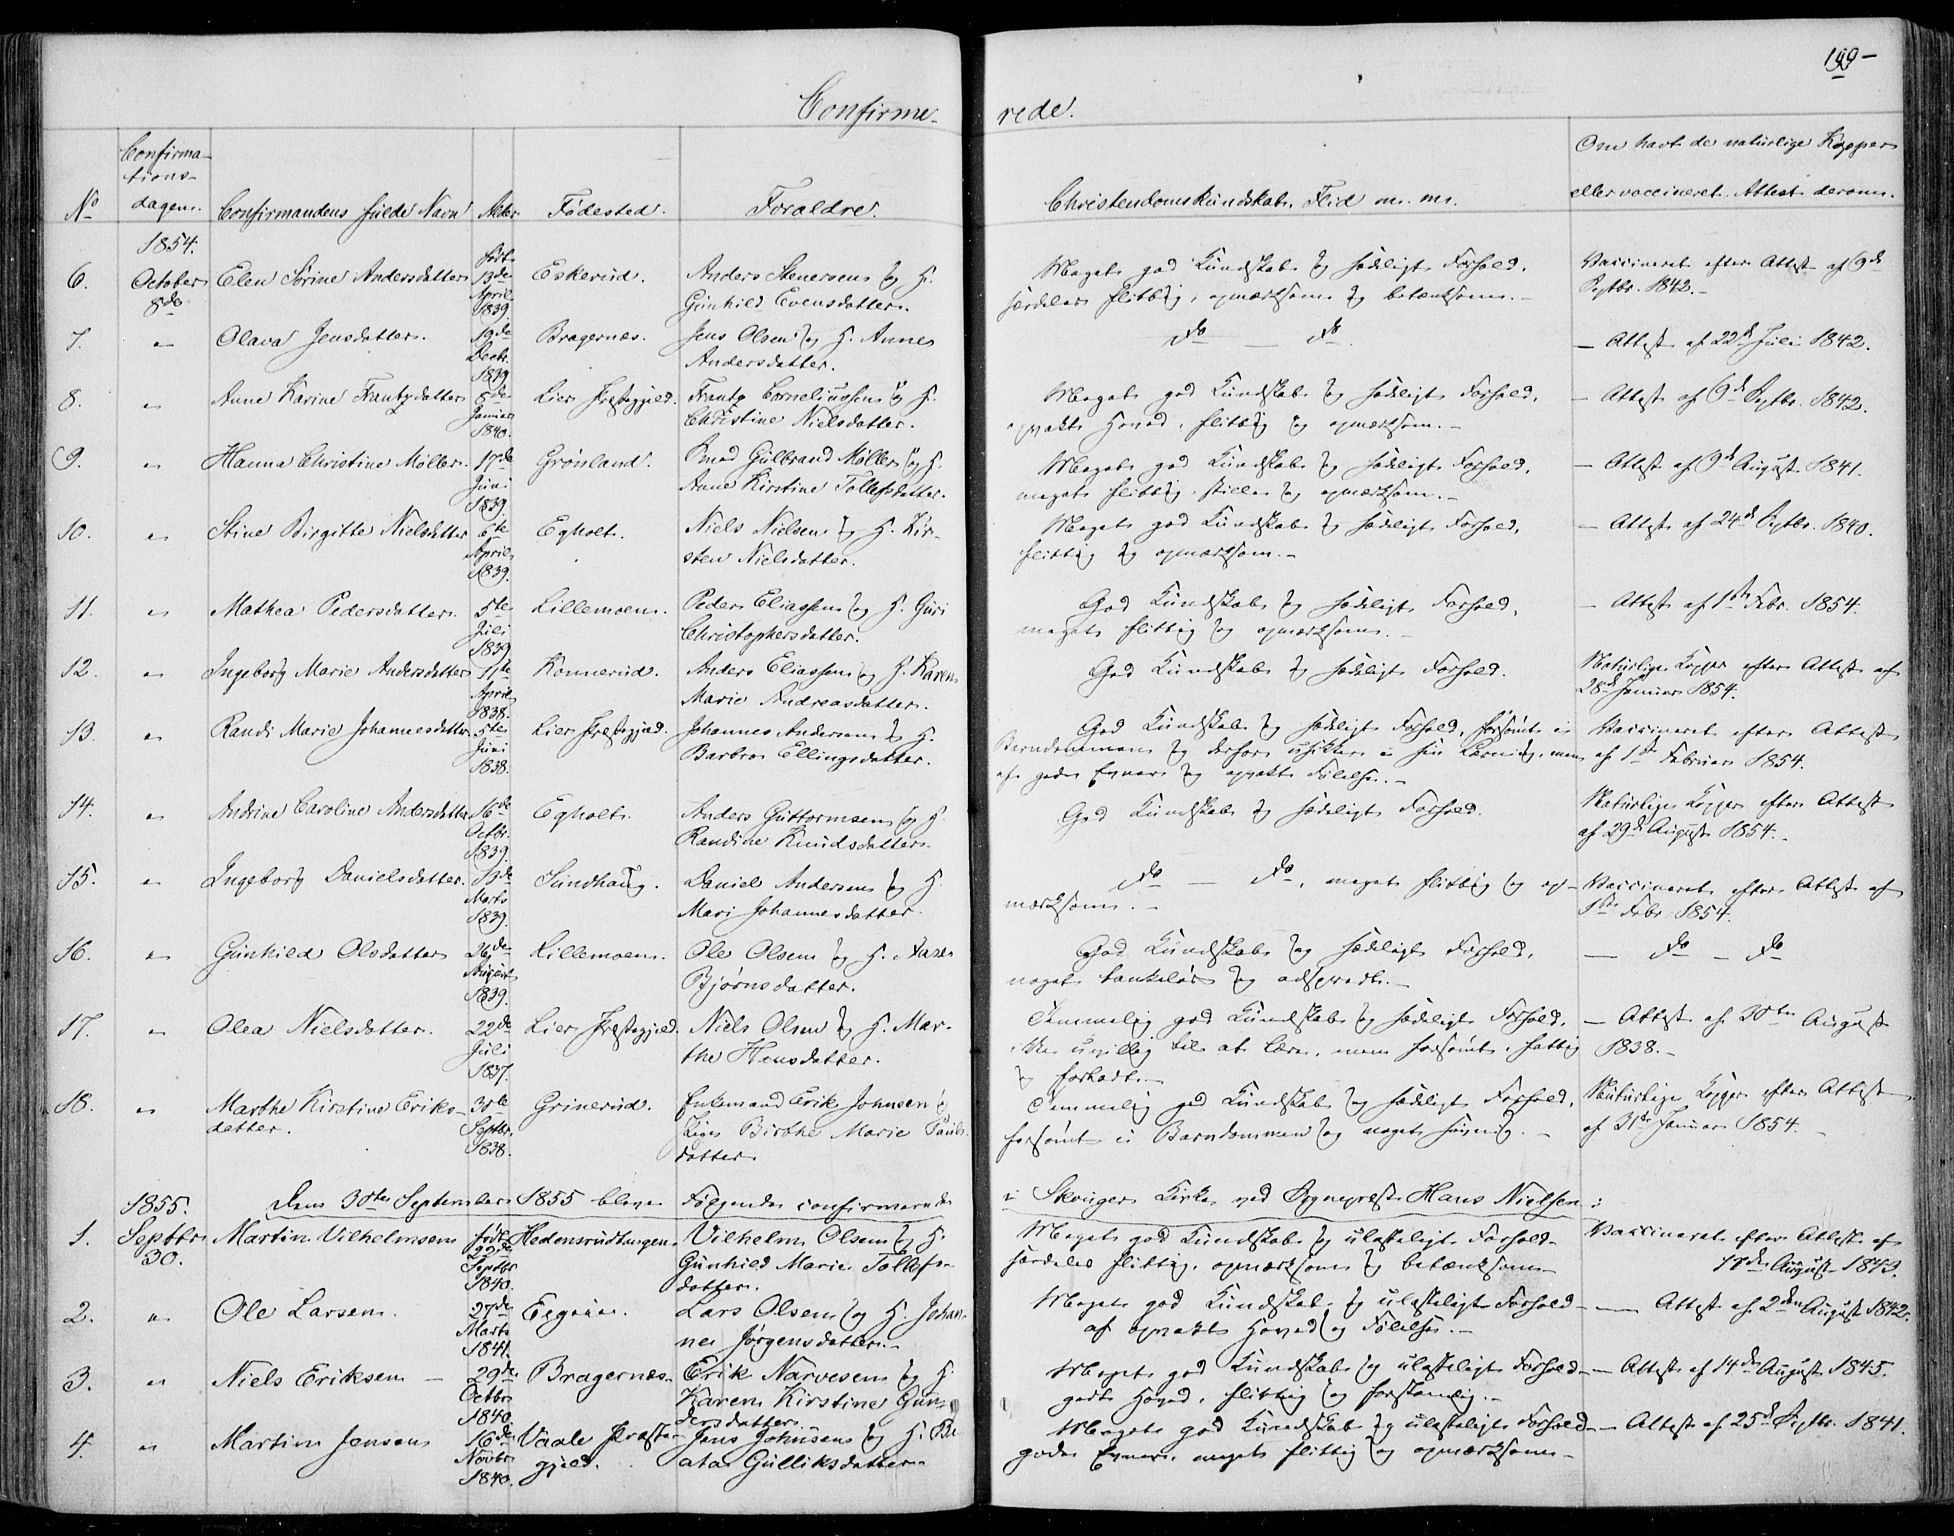 199-
Confirme- rede.
No
Confirma-
tions-
dagen.
Confirmandens fulde Navn
Alder
Födested.
Foraldre.
Christendoms Kundskab, Flid m. m.
Om havt de naturlige Kopper
eller vaccineret. Attest derom.
1854.
6. October 8de Elen Sörine Andersdatter Født 13de April 1839. Eskerud. Anders Stenersen og H.
Gunhild Evensdatter.
Meget god Kundskab og sædeligt Forhold,
særdeles flittig, opmærksom og betænksom.
Vaccineret efter Attest af 9de
Septbr. 1842.
7. " Olava Jensdatter. 19de Decbr. 1839 Bragernæs. Jens Olsen og H. Anne
Andersdatter.
do — do.
— Attest af 22de Juli 1842.
8. " Anne Karine Frantzdatter 8de Januar 1840. Lier Præstegjeld. Frantz Corneliussen og H.
Christine Nielsdatter.
Meget god Kundskab og sædeligt Forhold,
opvakt Hoved, flittig og opmærksom.
— Attest af 6de Septbr. 1842.
9. " Hanna Christine Møller. 17de Juni 1839. Grönland. Gulbrand Møller og H.
Anne Kirstine Tollefsdatter.
Meget god Kundskab og sædeligt Forhold,
meget flittig, stille og opmærksom.
— Attest af 9de August 1841.
10. " Stine Birgitte Nielsdatter 6te April 1839. Egholt. Niels Nielsen og H. Kir-
sten Nielsdatter.
Meget god Kundskab og sædeligt Forhold,
flittig og opmærksom.
— Attest af 24de Septbr. 1840.
11. " Mathea Pedersdatter. 5te Juli 1839 Lillemoen. Peder Eliassen og H. Guri
Christophersdatter.
God Kundskab og sædeligt Forhold,
meget flittig og opmærksom.
— Attest af 1ste Febr. 1854.
12. " Ingeborg Marie Andersdatter 11te April 1838. Konnerud. Anders Eliassen og H. Karen
Marie Andreasdatter.
God Kundskab og sædeligt Forhold.
Naturlige Kopper efter Attest af
28de Januar 1854.
13. " Randi Marie Johannesdatter 5te Juni 1838. Lier Præstegjeld. Johannes Andersen og H.
Barbro Ellingsdatter.
God Kundskab og sædeligt Forhold, forsömt i
Barndommen og derfor usikker i sin Læsning, men
af gode Evner og opvakt Følelse.
Vaccineret efter Attest
af 1ste Februar 1854.
14. " Andrine Caroline Andersdatter 16de Octbr. 1839. Egholt. Anders Guttormsen og H.
Randine Knudsdatter.
God Kundskab og sædeligt Forhold.
Naturlige Kopper efter Attest
af 29de August 1854.
15. " Ingeborg Danielsdatter. 13de Marts 1839. Sundhaug. Daniel Andersen og H.
Mari Johannesdatter.
do — do, meget flittig og op-
mærksom.
Vaccineret efter Attest af
1ste Febr. 1854.
16. " Gunhild Olsdatter 26de August 1839. Lillemoen. Ole Olsen og H. Aase
Bjørnsdatter.
God Kundskab og sædeligt Forhold,
noget tankeløs og adspredt.
— do — do
17. " Olea Nielsdatter. 22de Juli 1837. Lier Præstegjeld. Niels Olsen og H. Mar-
the Hensdatter.
Temmelig god Kundskab og sædeligt Forhold,
ikke uvillig til at lære, men forsömt, fattig
og
— Attest af 30te August
1838.
18. " Marthe Kirstine Eriks-
datter. 30te Septbr. 1838. Grinerud. Enkemand Erik Johnsen og
Pige Birthe Marie Pauls-
datter
Temmelig god Kundskab og sædeligt Forhold,
forsömt i Barndommen og noget
Naturlige Kopper efter Attest
af 31te Januar 1854.
1855. Den 30te September 1855 bleve Følgende confirmerede i Skouger Kirke ved Sognepræst Hans Nielsen:
1. Septbr. 30. Martin Vilhelmsen født 22de Septbr 1840. Hedensrudtangen. Vilhelm Olsen og H.
Gunhild Marie Tollefs-
datter.
Meget god Kundskab og ulasteligt Forhold-
særdeles flittig, opmærksom og betænksom
Vaccineret efter Attest af
17de August 1843.
2. " Ole Larsen. 27de Marts 1841. Lars Olsen og H. Johan-
ne Jørgensdatter.
Meget god Kundskab og ulasteligt Forhold-
af opvakt Hoved og Følelse.
— Attest af 2den August 1842.
3. " Niels Eriksen — 29de Octbr 1840. Bragernæs- Erik Narvesen og H.
Karen Kirstine Gun-
dersdatter.
Meget god Kundskab og ulasteligt Forhold-
godt Hoved, flittig og forstandig.
— Attest af 14de August 1845.
4. " Martin Jensen 16de Novbr 1840. Vaale Præste-
gjeld. Jens Johnsen og H. Be-
ata Gulliksdatter
Meget god Kundskab og ulasteligt Forhold-
gode Evner, meget flittig og opmærksom-
— Attest af 25de Septbr. 1841.